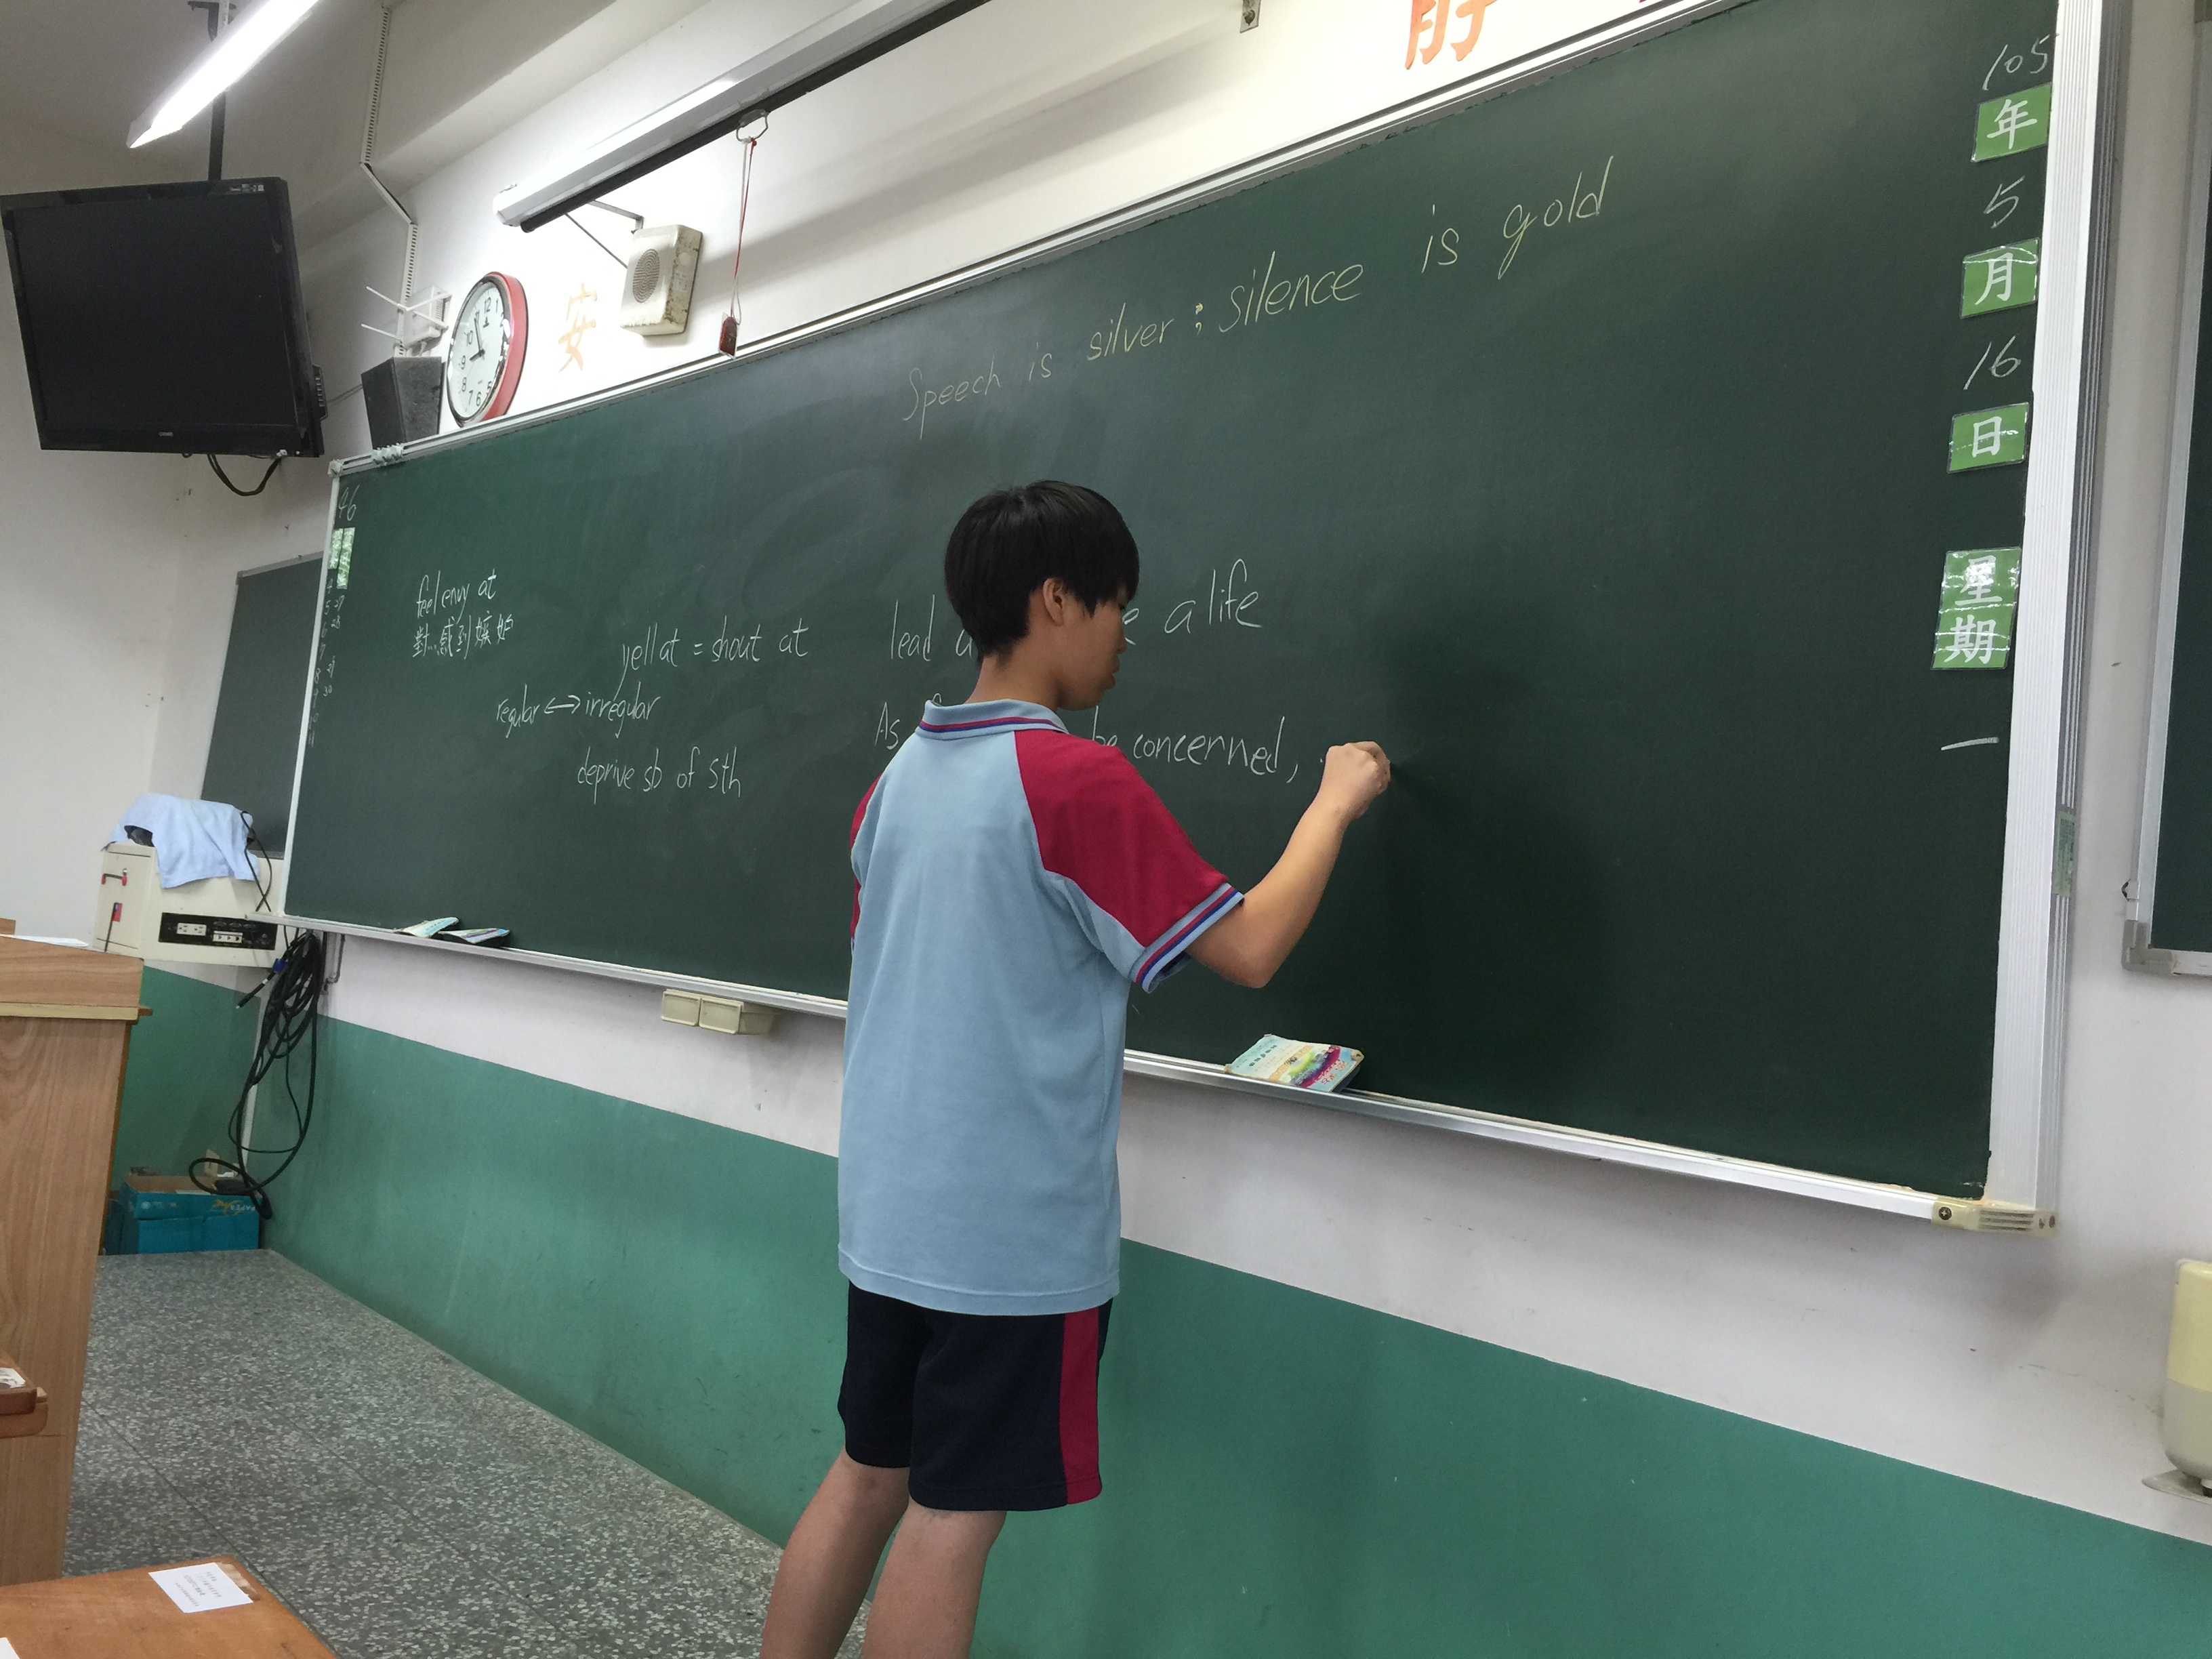 Speech is silver ; silence is gold
feel envy at
對…感到嫉妒
yell at = shout at
regular ↔ irregular
deprive sb of sth
lead a
a life
As
be concerned,
105
年
5
月
16
日
星
期
一
安
靜